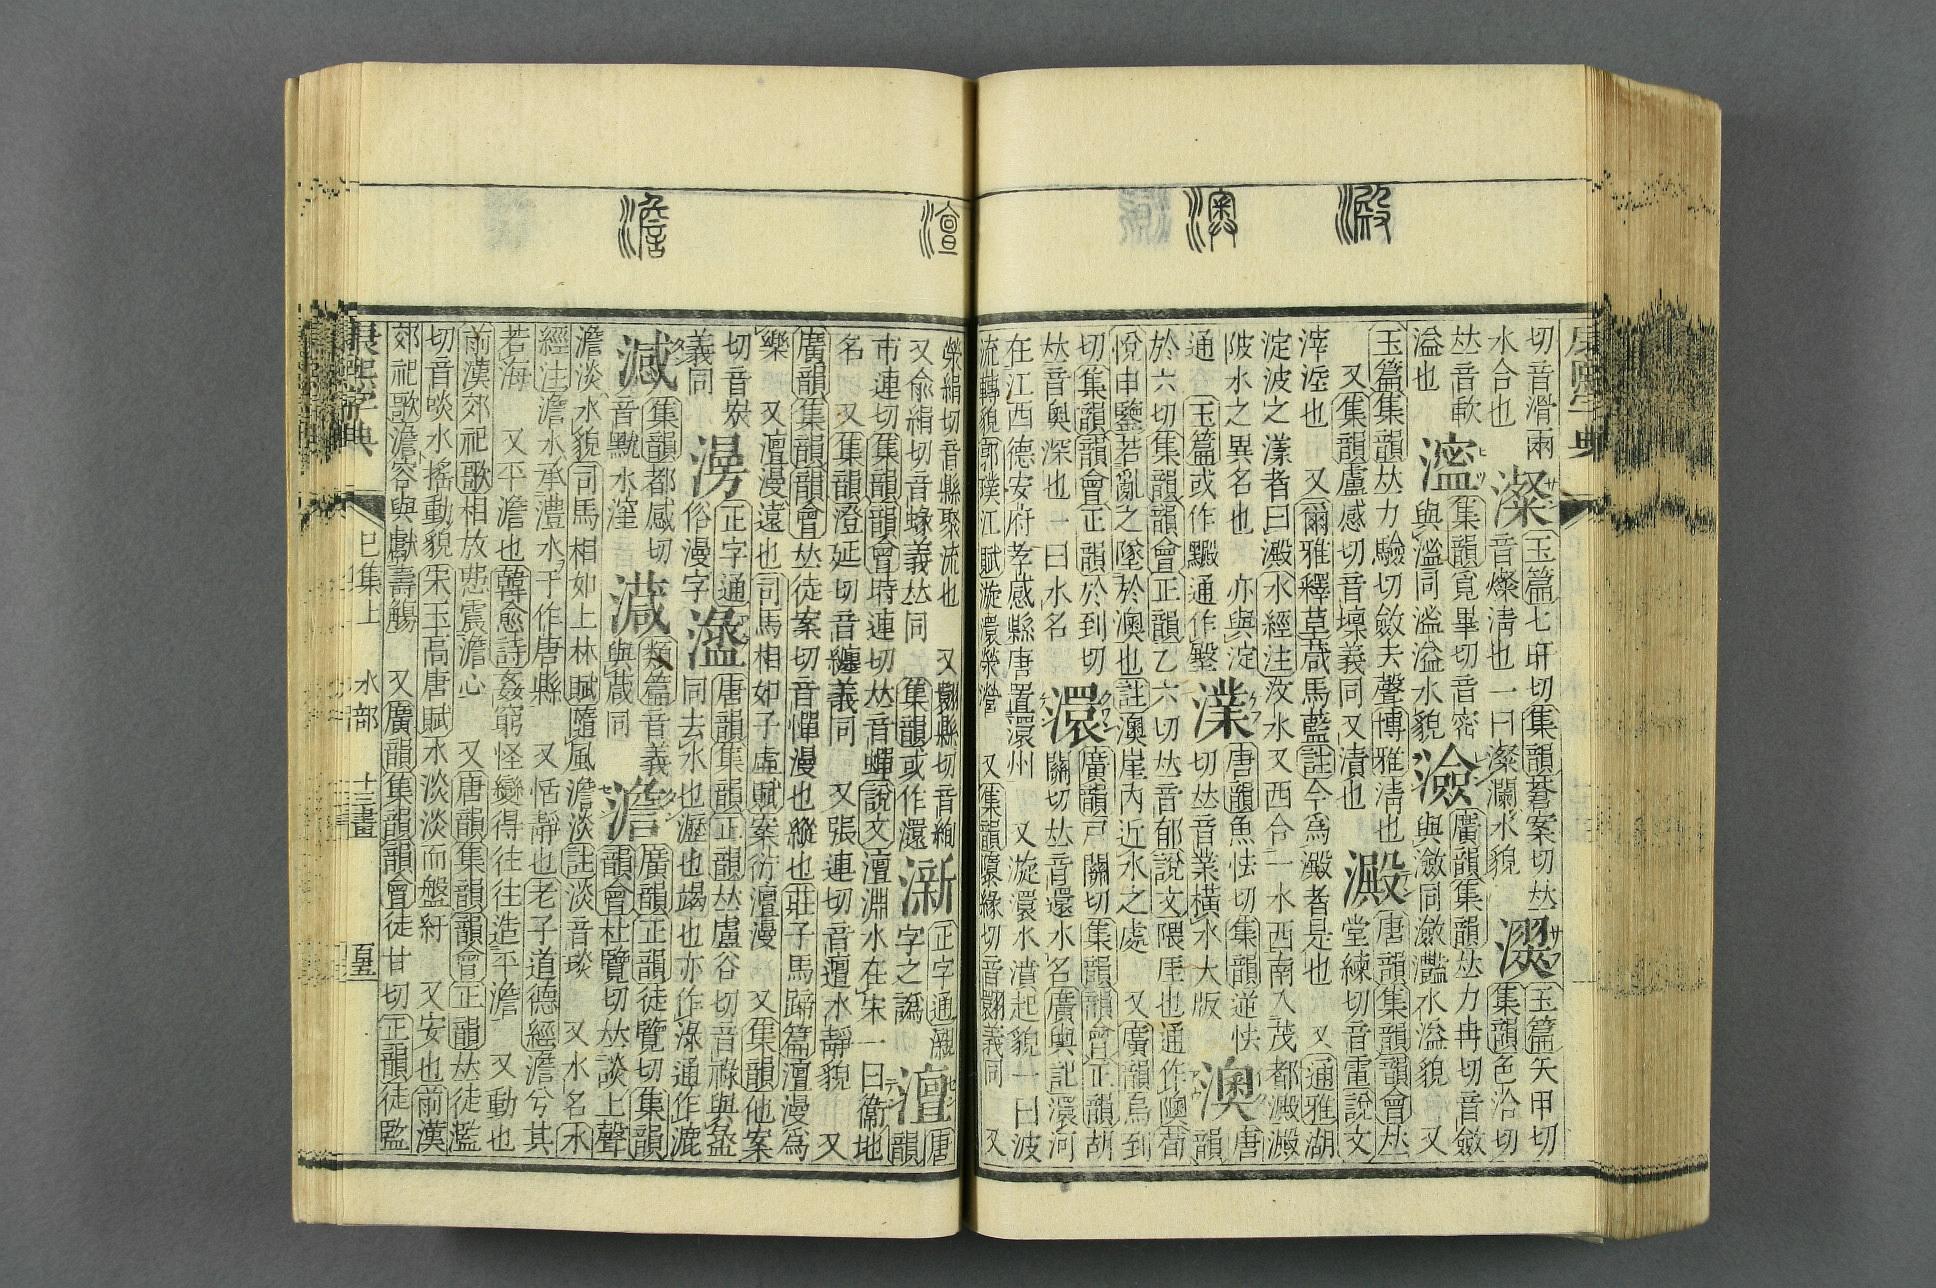 澱
澳
切音滑雨 玉篇七旰切集韻蒼案切𠀤 玉篇矢甲切
水合也 澯 音燦淸也一曰澯瀾水貌 集韻色洽切
𠀤音歃 集韻覓畢切音密 廣韻集韻𠀤力冉切音斂
溢也 與濫同溢溢水貌 澰 與瀲同瀲灩水溢貌 又
玉篇集韻𠀤力驗切斂去聲博雅淸也 唐韻集韻韻會𠀤
又集韻盧感切音壈義同又漬也 澱 堂練切音電說文
滓滓也 又爾雅釋草葴馬藍註今爲澱者是也 又通雅湖
淀波之漾者曰澱水經注汶水又西合一水西南入茂都澱澱
陂水之異名也 亦與淀 唐韻魚怯切集韻逆怯 唐
通 玉篇或作黰通作墼 澲 切𠀤音業橫水大版 澳 韻
於六切集韻韻會正韻乙六切𠀤音郁說文隈厓也通作隩荀
悅申鑒若亂之墜於澳也註澳崖內近水之處 又廣韻烏到
切集韻韻會正韻於到切 廣韻戸關切集韻韻會正韻胡
𠀤音奧深也一曰水名 澴 關切𠀤音還水名廣輿記澴河
在江西德安府孝感縣唐置澴州 又漩澴水濆起貌一曰波
流轉貌郭璞江賦漩澴滎瀯 又集韻隳緣切音翾義同 又
澶
澹
滎絹切音縣聚流也 又翾縣切音絢 正字通 唐
又兪絹切音蝝義𠀤同 集韻或作還 澵 字之譌 澶 韻
市連切集韻韻會時連切𠀤音蟬說文澶淵水在宋一曰衞地
名 又集韻澄延切音纏義同 又張連切音邅水靜貌 又
廣韻集韻韻會𠀤徒案切音憚漫也縱也莊子馬蹄篇澶漫爲
樂 又澶漫遠也司馬相如子虛賦案衍澶漫 又集韻他案
切音炭 正字通 唐韻集韻正韻𠀤盧谷切音祿與盝
義同 俗漫字 同去水也瀝也竭也亦作淥通作漉
集韻都感切 類篇音義 廣韻正韻徒覽切集韻
音黕水滓 與葴同 澹 韻會杜覽切𠀤談上聲
澹淡水貌司馬相如上林賦隨風澹淡註淡音琰 又水名水
經注澹水承澧水于作唐縣 又恬靜也老子道德經澹兮其
若海 又平澹也韓愈詩姦窮怪變得往往造平澹 又動也
前漢郊祀歌相放𢘍震澹心 又唐韻集韻韻會正韻𠀤徒濫
切音啖水搖動貌宋玉高唐賦水淡淡而盤紆 又安也前漢
郊祀歌澹容與獻壽觴 又廣韻集韻韻會徒甘切正韻徒監
康熙字典 巳集上 水部 十三畫